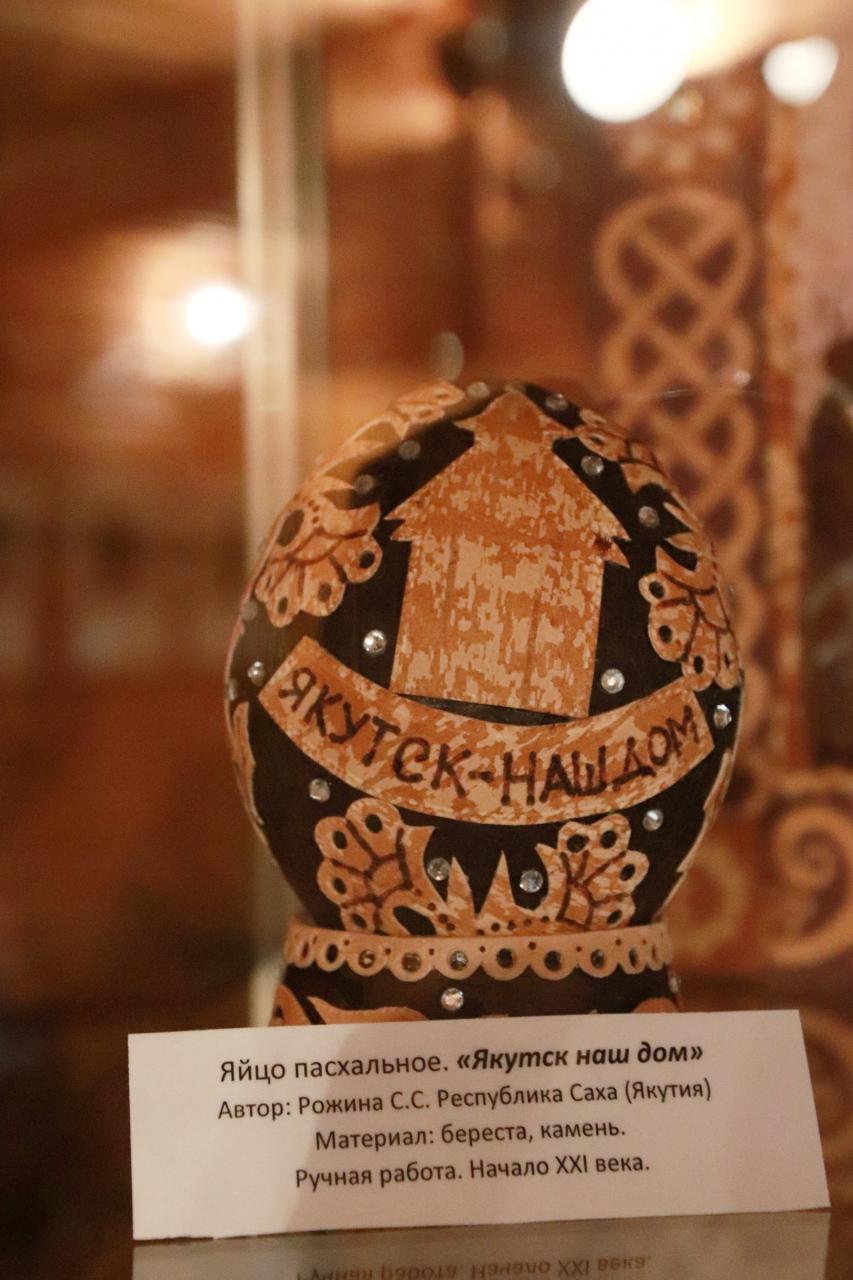 ЯКУТСК-НАШ ДОМ
Яйцо пасхальное. «Якутск наш дом»
Автор: Рожина С.С. Республика Саха (Якутия)
Материал: береста, камень.
Ручная работа. Начало XXI века.